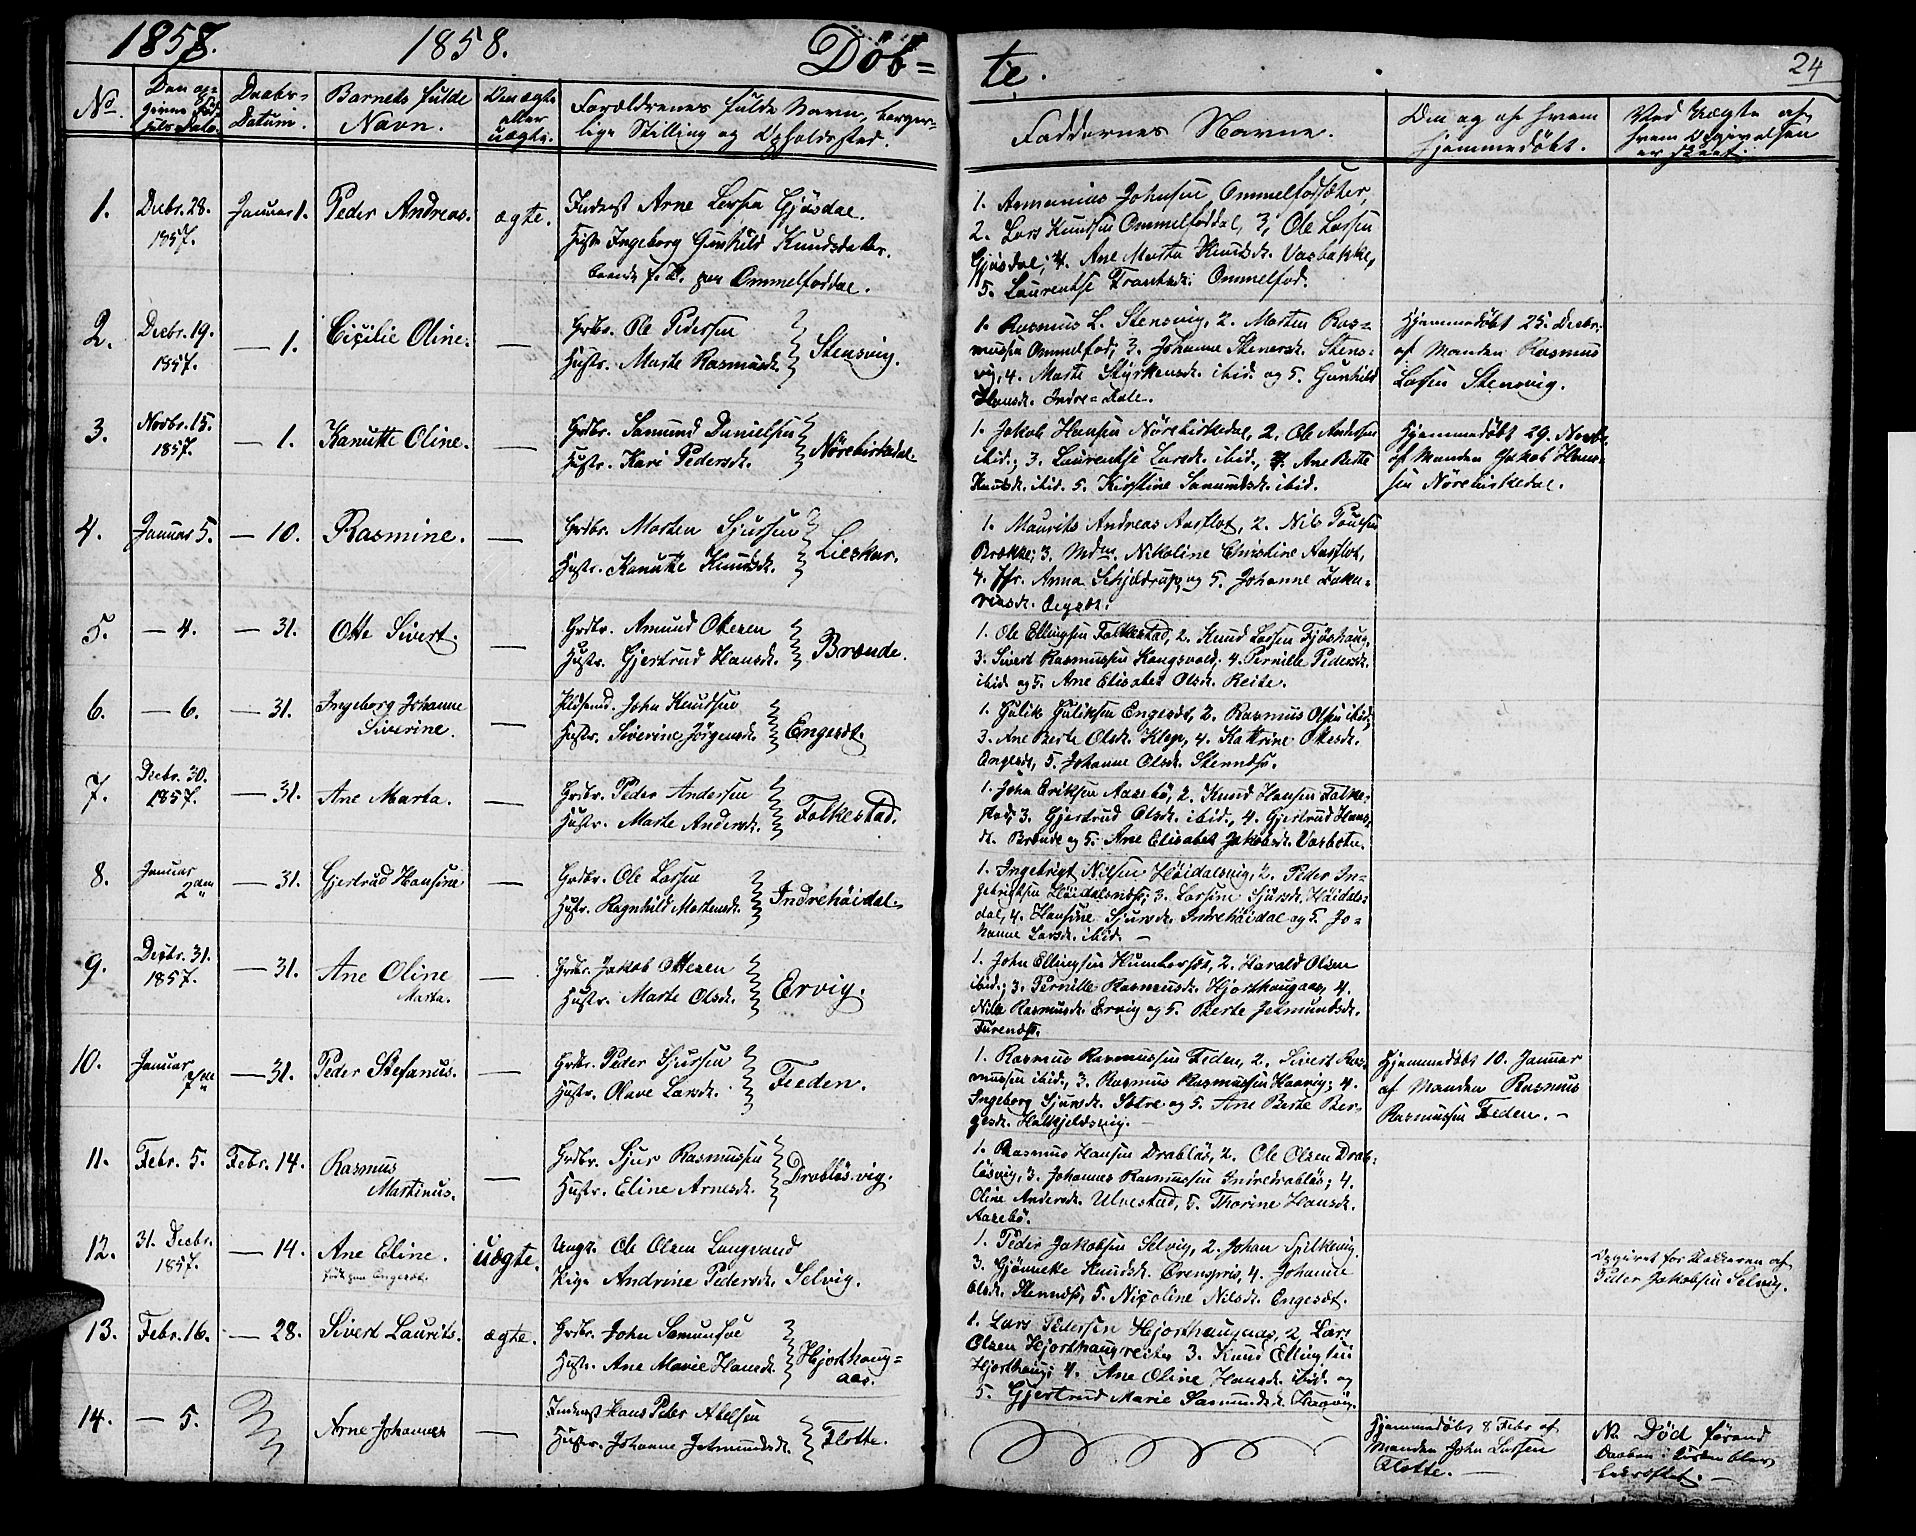 1858.
1858.
Döb=
te.
24
No.
Den op-
givne Föd-
sels Dato.
Daabs-
Datum.
Barnets fulde
Navn.
Om ægte
eller
uægte.
Forældrenes fulde Navn, borger-
lige Stilling og Opholdssted.
Faddernes Navne.
Om og af hvem
hjemmedöbt.
Ved Uægte af
hvem Opgivelsen
er skeet.
1.
Decbr. 28.
1857.
Januar 1.
Peder Andreas.
ægte.
Inderst Arne Larsen Gjøsdal.
Hustr Ingeborg Gunhild Knudsdatter
begge f. T. paa Ommelfoddal.
1. Ammanius Johnsen Ommelfodsæter,
2. Lars Knudsen Ommelfoddal, 3, Ole Larsen
Gjøsdal; 4. Ane Marta Knudsdt. Vasbakke,
5. Laurentse Frantsdt. Ommelfod.
2.
Decbr. 19.
1857.
— 1.
Cicilie Oline.
—
Grdbr. Ole Pedersen
Hustr. Marte Rasmusdt.
Stensvig.
1. Rasmus L. Stensvig, 2. Morten Ras=
mussen Ommelfod, 3. Johanne Stenersdt. Stens=
vig, 4. Marte Styrkersdt. ibid. og 5. Gunhild
Hansdt. Indre=Dale.
Hjemmedöbt 25. Decbr.
af Manden Rasmus
Larsen Stensvig.
3.
Novbr. 15.
1857.
— 1.
Kanutte Oline.
—
Grdbr. Samund Danielsen
Hustr. Kari Pedersdt.
Nörebirkedal
1. Jakob Hansen Nörebirkedal, 2. Ole Andersen
ibid.; 3. Laurentse Larsdt. ibid., 4. Ane Berte
Knudsdt. ibid. 5. Kirstine Samundsdt. ibid.
Hjemmedöbt 29. Novbr.
af Manden Jakob Han=
sen Nörebirkedal.
4.
Januar 5.
— 10.
Rasmine.
—
Grdbr. Morten Sjursen
Hustr. Kanutte Knudsdt.
Lieskar.
1. Maurits Andreas Aarflot, 2. Nils Poulsen
Brække; 3. Mdm. Nikoline Christine Aarflot,
4. Jfr. Anna Schjeldrup og 5. Johanne Zaka=
riasdt.
5.
— 4.
— 31.
Otte Sivert.
—
Grdbr. Amund Ottesen
Hustr. Gjertrud Hansdt.
Brænde.
1. Ole Ellingsen Folkestad, 2. Knud Larsen Fjöshaug,
3. Sivert Rasmussen Kongsvold; 4. Pernille Pedersdt.
ibid. og 5. Ane Elisabet Olsdt. Reite.
6.
— 6.
— 31.
Ingeborg Johanne
Siverine.
—
Husmd. John Knudsen
Hustr. Siverine Jörgensdt.
Engesæt.
1. Gulik Guliksen Engesæt, 2. Rasmus Olsen ibid;
3. Ane Berte Olsdt. Klep, 4. Kattrine Ottesdt.
Engesæt, 5. Johanne Olsdt. Stennæs.
7.
Decbr. 30.
1857.
— 31.
Ane Marta.
—
Grdbr. Peder Andersen
Hustr. Marte Andersdt.
Folkestad.
1. John Eriksen Aasebö, 2. Knud Hansen Folke-
stad; 3. Gjertrud Olsdt. ibid., 4. Gjertrud Hans-
dt. Brænde og 5. Ane Elisabet Jakobsdt. Vasbotn.
8.
Januar
2den
— 31.
Gjertrud Hansine
—
Grdbr. Ole Larsen
Hustr. Ragnhild Mortensdt.
Indrehöidal.
1. Ingebrigt Nilsen Höidalsvig, 2. Peder In-
gebrigtsen Höidalsnæs; 3. Larsine Sjursdt. Höidals-
dal, 4. Hansine Sjursdt. Indrehöidal og 5. Jo-
hanne Larsdt. ibid. —
9.
Decbr. 31.
1857.
— 31.
Ane Oline
Marta.
—
Grdbr. Jakob Ottesen
Hustr. Marte Olsdt.
Ervig.
1. John Ellingsen Humborsæt, 2. Harald Olsen
ibid.; 3. Pernille Rasmusdt. Hjorthaugaas, 4.
Nille Rasmusdt. Ervig og 5. Berte Jetmundsdt.
Furenæs.
10.
Januar
7de
— 31.
Peder Stefanus.
—
Grdbr. Peder Sjursen
Hustr. Olave Larsdt.
Feden.
1. Rasmus Rasmussen Feden, 2. Sivert Ras-
mussen ibid., 3. Rasmus Rasmussen Haavig; 4.
Ingeborg Sjursdt. Sætre og 5. Ane Berte Ber-
gesdt. Halkjeldsvig. —
Hjemmedöbt 10. Januar
af Manden Rasmus
Rasmussen Feden. —
11.
Febr. 5.
Febr. 14.
Rasmus
Martinus.
—
Grdbr. Sjur Rasmussen
Hustr. Eline Arnesdt.
Drablösvig.
1. Rasmus Hansen Drablös, 2. Ole Olsen Drab-
lösvig, 3. Johannes Rasmussen Indredrablös; 4.
Oline Andersdt. Ulvestad, 5. Thorine Hansdt.
Aasebö.
12.
31. Decbr.
1857.
— 14.
Ane Eline.
födt paa Engesæt.
uægte.
Ungk. Ole Olsen Langvand
Pige Andrine Pedersdt. Selvig.
1. Peder Jakobsen Selvig, 2. Johan Spilkevig
3. Gjönneke Knudsdt. Ørenspris, 4. Johanne
Olsdt. Stennæs, 5. Nicoline Nilsdt. Engesæt.
Opgivet for Klokkeren af
Peder Jakobsen Selvig.
13.
Febr. 16.
— 28.
Sivert Laurits.
ægte.
Grdbr. John Samundsen
Hustr. Ane Marie Hansdt.
Hjorthaug=
aas.
1. Lars Pedersen Hjorthaugaas, 2 Lars
Olsen Hjorthaugreiten 3. Knud Ellingsen
Hjorthaug; 4. Ane Oline Hansdt. ibid. og
5. Gjertrud Marie Samundsdt. Haavig.
14.
— 5.
Arne Johannes
—
Inderst Hans Peter Abelsen
Hustr. Johanne Jetmundsdt.
Flotte.
Hjemmedöbt 8 Febr. af
Manden John Larsen
Flotte. —
NB. Död förend
Daaben i Kirken blev
bekræftet. —